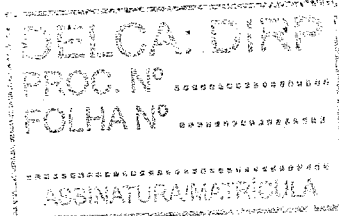 DELCA: DIRP
PROC. Nº ....................
FOLHA Nº ....................
........................................
ASSINATURA/MATRÍCULA